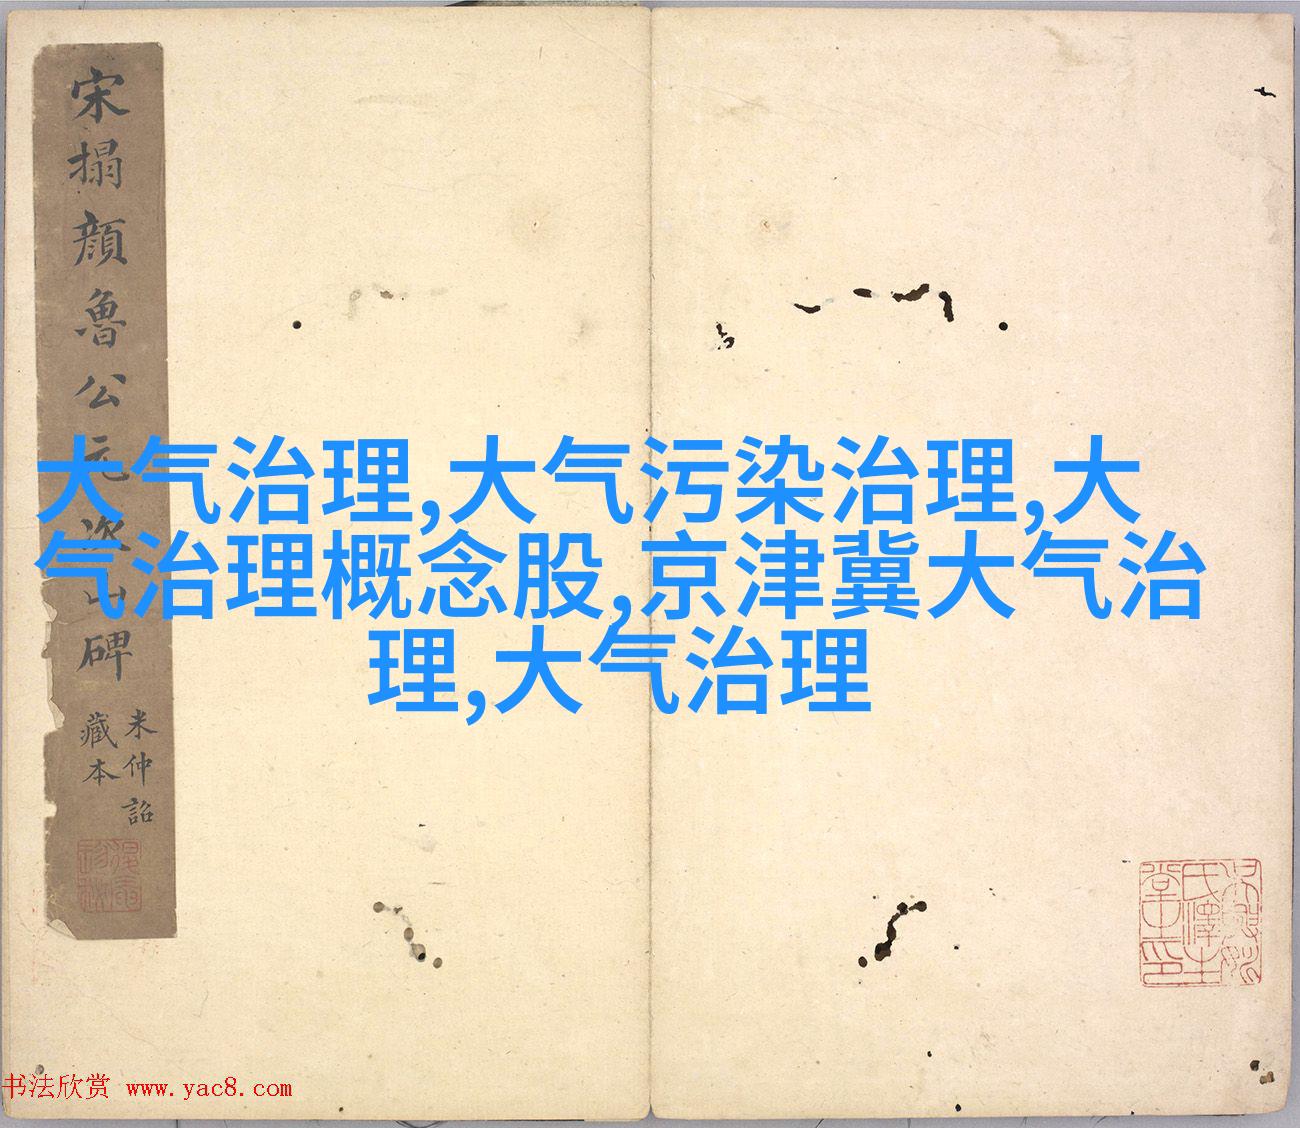 宋搨顔魯公元次山碑
米仲詔
藏本
大气治理,大气污染治理,大
气治理概念股,京津冀大气治
理,大气治理
书法欣赏 www.yac8.com